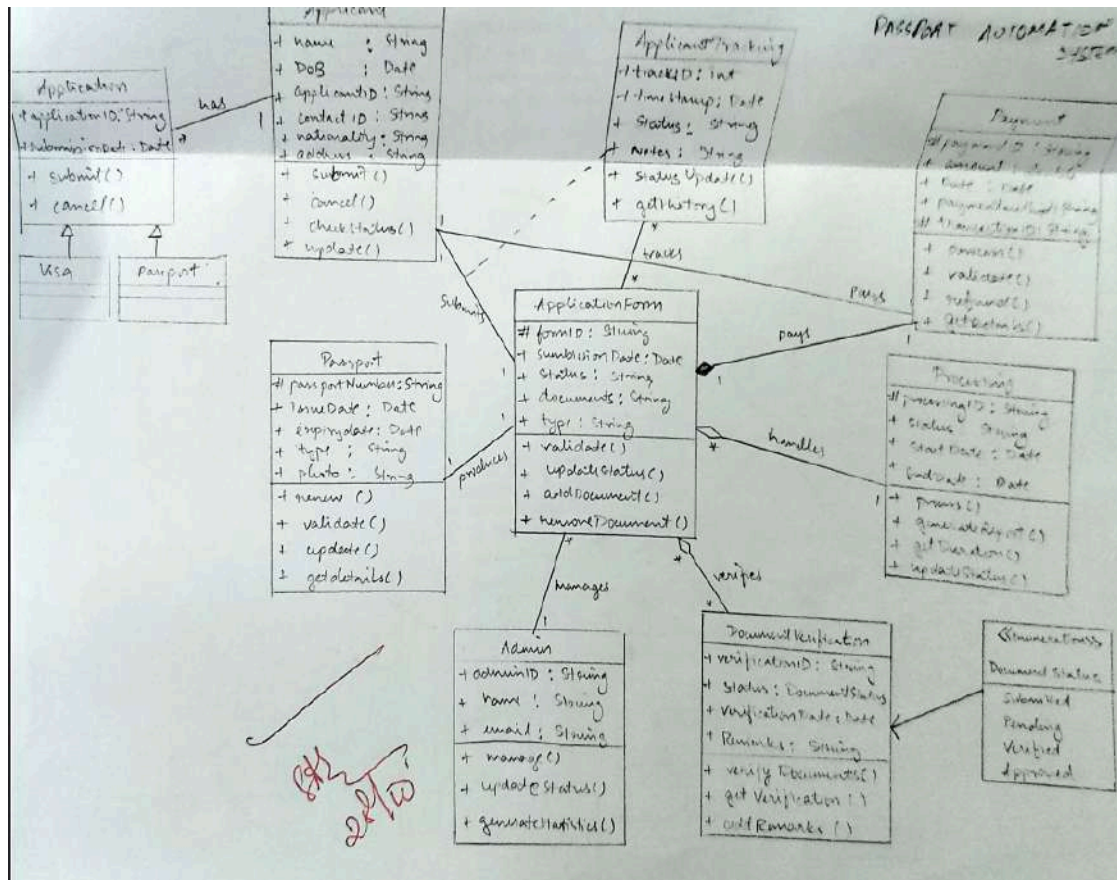 PASSPORT AUTOMATION
SYSTEM
Applicant
+ name : String
+ DoB : Date
+ applicantID : String
+ contactID : String
+ nationality : String
+ address : String
+ submit()
+ cancel()
+ checkStatus()
+ update()
Application
+ applicationID : String
+ submissionDate : Date
+ submit()
+ cancel()
Visa
Passport
has
1
*
ApplicantTracking
+ trackID : int
+ timeStamp : Date
+ Status : String
+ Notes : String
+ StatusUpdate()
+ getHistory()
*
tracks
*
Payment
# paymentID : String
+ amount :
+ Date : Date
+ paymentmethod : String
# transactionID : String
+ validate()
+ refund()
+ getDetails()
1
1
Submits
pays
ApplicationForm
# formID : String
+ sumbision Date : Date
+ Status : String
+ documents : String
+ type : String
+ validate()
+ updateStatus()
+ addDocument()
+ removeDocument()
1
pays
1
1
Passport
# passportNumber : String
+ IssueDate : Date
+ expirydate : Date
+ type : String
+ photo : String
+ renew ()
+ validate()
+ update()
+ getdetails()
1
produces
1
Processing
# processingID : String
+ status : String
+ StartDate : Date
+ EndDate : Date
+ process()
+ generateReport()
+ getDuration()
+ updateStatus()
*
handles
1
*
manages
1
Admin
+ adminID : String
+ name : String
+ email : String
+ manage()
+ updateStatus()
+ generateStatistics()
*
verifies
*
DocumentVerification
+ verificationID : String
+ Status : DocumentStatus
+ verificationDate : Date
+ Remarks : String
+ verifyDocuments()
+ getVerification ()
+ addRemarks ()
<<Enumeration>>
Document Status
Submitted
Pending
Verified
Approved